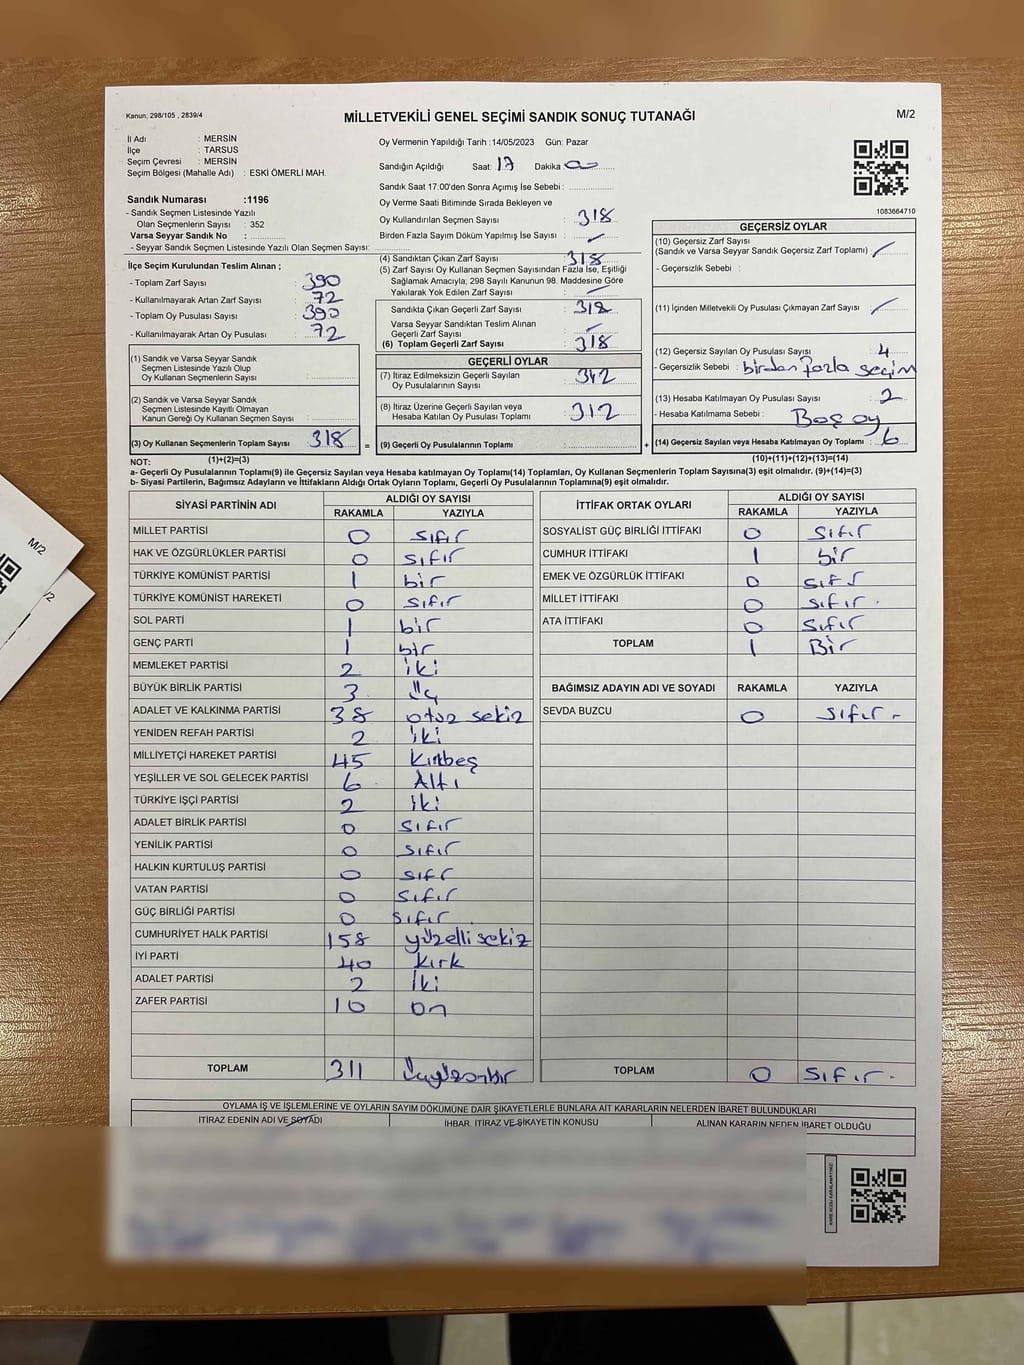 Kanun; 298/105 , 2839/4
MİLLETVEKİLİ GENEL SEÇİMİ SANDIK SONUÇ TUTANAĞI
M/2
İl Adı : MERSİN
İlçe : TARSUS
Seçim Çevresi : MERSİN
Seçim Bölgesi (Mahalle Adı) : ESKİ ÖMERLİ MAH.
Sandık Numarası :1196
- Sandık Seçmen Listesinde Yazılı
Olan Seçmenlerin Sayısı : 352
Varsa Seyyar Sandık No : ..............
- Seyyar Sandık Seçmen Listesinde Yazılı Olan Seçmen Sayısı: ..............
Oy Vermenin Yapıldığı Tarih :14/05/2023 Gün: Pazar
Sandığın Açıldığı Saat: 17 Dakika 00
Sandık Saat 17.00'den Sonra Açımış İse Sebebi : ..............
Oy Verme Saati Bitiminde Sırada Bekleyen ve
Oy Kullandırılan Seçmen Sayısı : 318
Birden Fazla Sayım Döküm Yapılmış İse Sayısı :
1083664710
İlçe Seçim Kurulundan Teslim Alınan ;
- Toplam Zarf Sayısı : 390
- Kullanılmayarak Artan Zarf Sayısı : 72
- Toplam Oy Pusulası Sayısı : 390
- Kullanılmayarak Artan Oy Pusulası : 72
(1) Sandık ve Varsa Seyyar Sandık
Seçmen Listesinde Yazılı Olup
Oy Kullanan Seçmenlerin Sayısı : ..............
(2) Sandık ve Varsa Seyyar Sandık
Seçmen Listesinde Kayıtlı Olmayan
Kanun Gereği Oy Kullanan Seçmen Sayısı : ..............
(3) Oy Kullanan Seçmenlerin Toplam Sayısı : 318 =
(1)+(2)=(3)
(4) Sandıktan Çıkan Zarf Sayısı : 318
(5) Zarf Sayısı Oy Kullanan Seçmen Sayısından Fazla İse, Eşitliği
Sağlamak Amacıyla; 298 Sayılı Kanunun 98. Maddesine Göre
Yakılarak Yok Edilen Zarf Sayısı :
Sandıkta Çıkan Geçerli Zarf Sayısı : 318
Varsa Seyyar Sandıktan Teslim Alınan
Geçerli Zarf Sayısı :
(6) Toplam Geçerli Zarf Sayısı : 318
GEÇERLİ OYLAR
(7) İtiraz Edilmeksizin Geçerli Sayılan
Oy Pusulalarının Sayısı : 342
(8) İtiraz Üzerine Geçerli Sayılan veya
Hesaba Katılan Oy Pusulası Toplamı : 312
(9) Geçerli Oy Pusulalarının Toplamı : .............. +
GEÇERSİZ OYLAR
(10) Geçersiz Zarf Sayısı
(Sandık ve Varsa Seyyar Sandık Geçersiz Zarf Toplamı) :
- Geçersizlik Sebebi :
(11) İçinden Milletvekili Oy Pusulası Çıkmayan Zarf Sayısı :
(12) Geçersiz Sayılan Oy Pusulası Sayısı : 4
- Geçersizlik Sebebi : birden fazla seçim
(13) Hesaba Katılmayan Oy Pusulası Sayısı : 2
- Hesaba Katılmama Sebebi : Boş oy
(14) Geçersiz Sayılan veya Hesaba Katılmayan Oy Toplamı : 6
(10)+(11)+(12)+(13)=(14)
NOT:
a- Geçerli Oy Pusulalarının Toplamı(9) ile Geçersiz Sayılan veya Hesaba katılmayan Oy Toplamı(14) Toplamları, Oy Kullanan Seçmenlerin Toplam Sayısına(3) eşit olmalıdır. (9)+(14)=(3)
b- Siyasi Partilerin, Bağımsız Adayların ve İttifakların Aldığı Ortak Oyların Toplamı, Geçerli Oy Pusulalarının Toplamına(9) eşit olmalıdır.
SİYASİ PARTİNİN ADI ALDIĞI OY SAYISI
RAKAMLA YAZIYLA
MİLLET PARTİSİ 0 sıfır
HAK VE ÖZGÜRLÜKLER PARTİSİ 0 sıfır
TÜRKİYE KOMÜNİST PARTİSİ 1 bir
TÜRKİYE KOMÜNİST HAREKETİ 0 sıfır
SOL PARTİ 1 bir
GENÇ PARTİ 1 bir
MEMLEKET PARTİSİ 2 iki
BÜYÜK BİRLİK PARTİSİ 3 üç
ADALET VE KALKINMA PARTİSİ 38 otuz sekiz
YENİDEN REFAH PARTİSİ 2 iki
MİLLİYETÇİ HAREKET PARTİSİ 45 Kırkbeş
YEŞİLLER VE SOL GELECEK PARTİSİ 6 Altı
TÜRKİYE İŞÇİ PARTİSİ 2 iki
ADALET BİRLİK PARTİSİ 0 sıfır
YENİLİK PARTİSİ 0 sıfır
HALKIN KURTULUŞ PARTİSİ 0 sıfr
VATAN PARTİSİ 0 sıfır
GÜÇ BİRLİĞİ PARTİSİ 0 sıfır
CUMHURİYET HALK PARTİSİ 158 yüzelli sekiz
İYİ PARTİ 40 kırk
ADALET PARTİSİ 2 İki
ZAFER PARTİSİ 10 on
TOPLAM 311 Üçyüzonbir
İTTİFAK ORTAK OYLARI ALDIĞI OY SAYISI
RAKAMLA YAZIYLA
SOSYALİST GÜÇ BİRLİĞİ İTTİFAKI 0 sıfır
CUMHUR İTTİFAKI 1 bir
EMEK VE ÖZGÜRLÜK İTTİFAKI 0 sıfr
MİLLET İTTİFAKI 0 sıfır.
ATA İTTİFAKI 0 sıfır
TOPLAM 1 Bir
BAĞIMSIZ ADAYIN ADI VE SOYADI RAKAMLA YAZIYLA
SEVDA BUZCU 0 sıfır -
TOPLAM 0 sıfır.
OYLAMA İŞ VE İŞLEMLERİNE VE OYLARIN SAYIM DÖKÜMÜNE DAİR ŞİKAYETLERLE BUNLARA AİT KARARLARIN NELERDEN İBARET BULUNDUKLARI
İTİRAZ EDENİN ADI VE SOYADI İHBAR, İTİRAZ VE ŞİKAYETİN KONUSU ALINAN KARARIN NEDEN İBARET OLDUĞU
M/2
/2